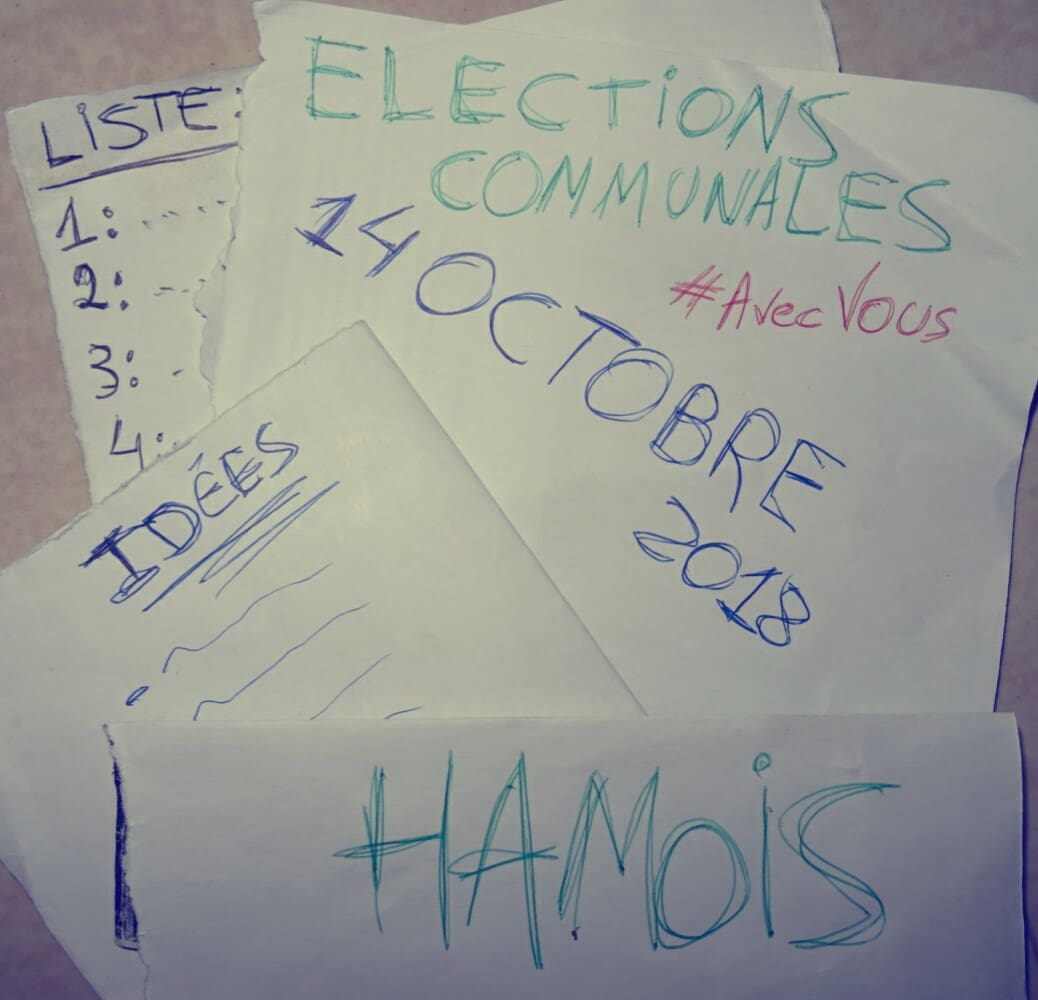 LISTE:
1:
2:
3:
4:
ELECTIONS
COMMUNALES
14 OCTOBRE
2018
#AvecVous
IDÉES
HAMOIS